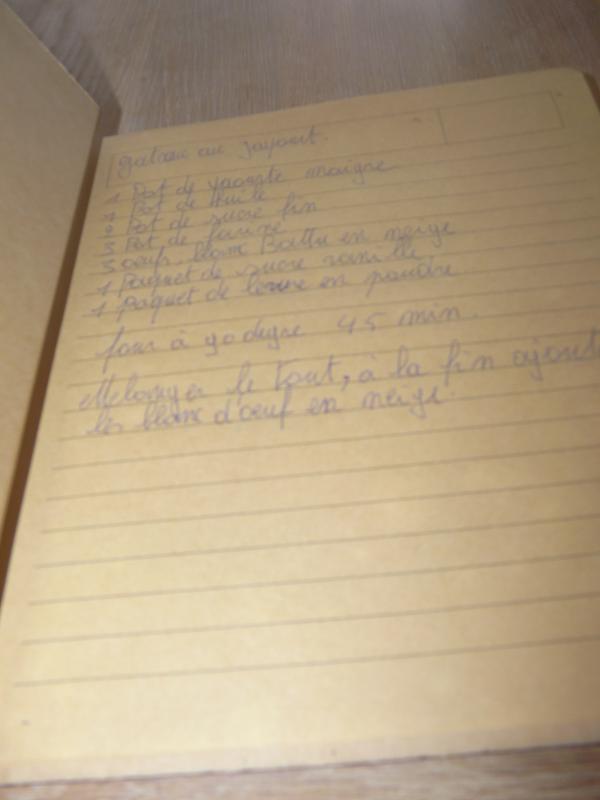 gateau au yaourt.
1 Pot de yaourte maigre
1 Pot de Huile
2 Pot de sucre fin
3 Pot de farine
3 oeufs. blanc Battu en neige
1 paquet de sucre vanille.
1 paquet de levure en poudre
four à 90 degre 45 min.
Melanger le tout, à la fin ajoute
les blanc d'oeuf en neige.